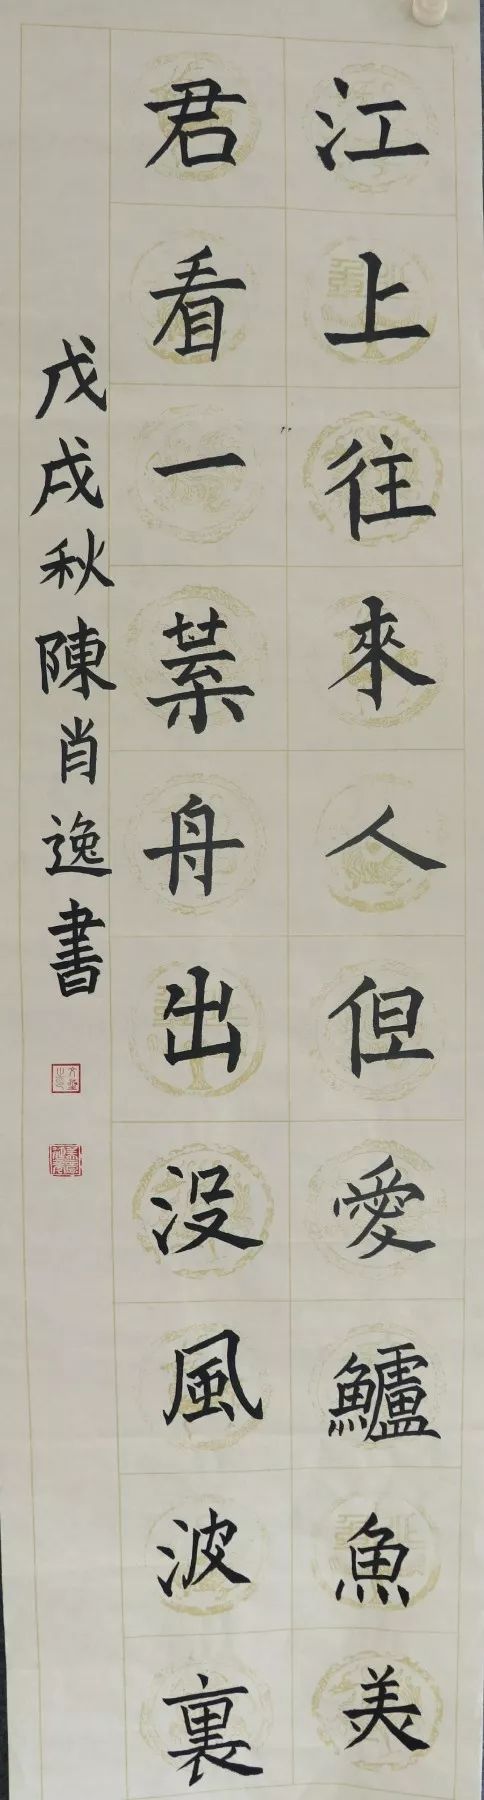 江上往來人但愛鱸魚美
君看一葉舟出没風波裏
戊戌秋陳肖逸書